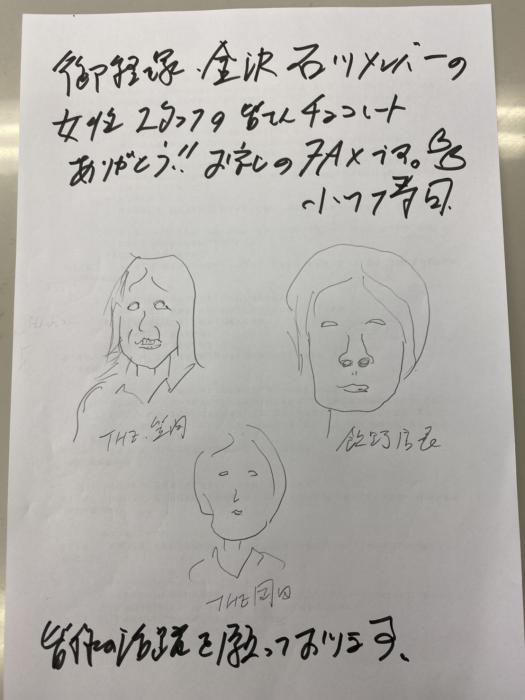 御経塚 金沢 石川メンバーの
女性スタッフの皆さんチョコレート
ありがとう!! お礼のFAXです。
寿司
THE.笠間
飯野店長
THE岡田
皆んなの活躍を願っております、